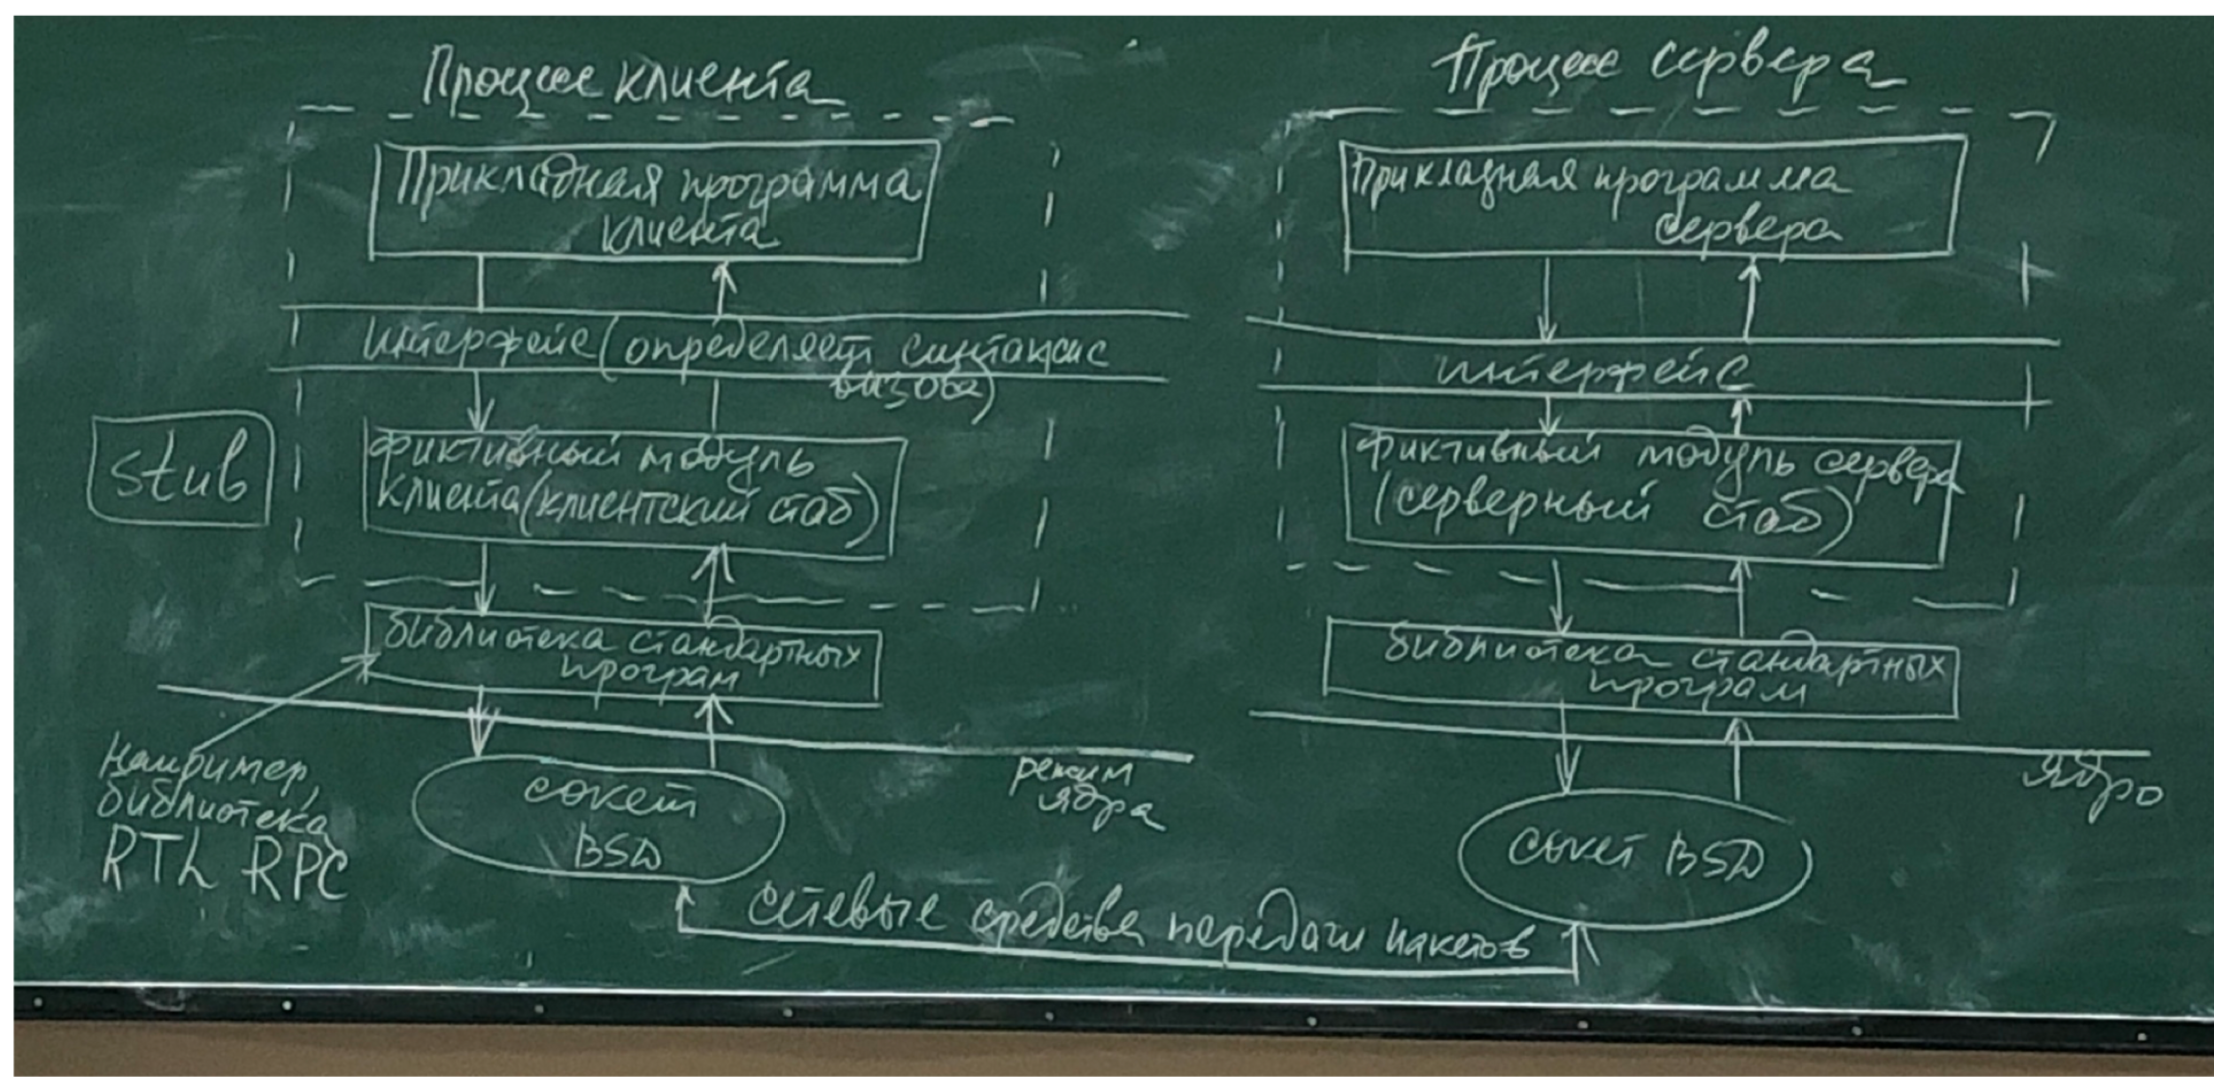 Процесс клиента
Прикладная программа
клиента
интерфейс (определяет синтаксис
вызова)
stub
фиктивный модуль
клиента (клиентский стаб)
библиотека стандартных
програм
например,
библиотека
RTL RPC
режим
ядра
сокет
BSD
Процесс сервера
Прикладная программа
сервера
интерфейс
фиктивный модуль сервера
(серверный стаб)
библиотека стандартных
програм
ядро
сокет BSD
сетевые средства передачи пакетов